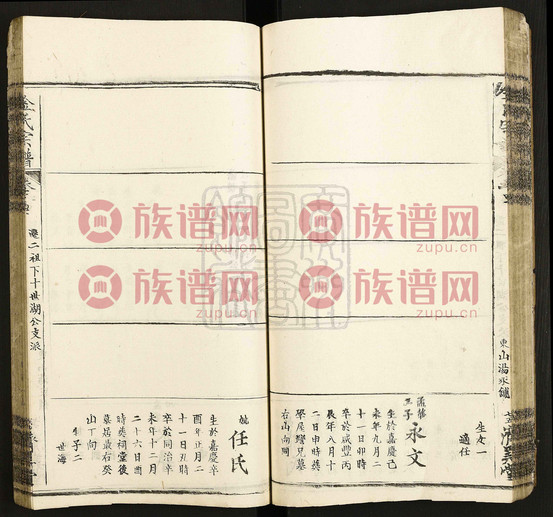 東山湯水鋪
生女一
適任
五子
永文
生於嘉慶己
未年九月二
十一日卯時
卒於咸豐丙
辰年八月十
二日申時葬
學屋灣兄墓
右山向同
妣
任氏
生於嘉慶辛
酉年正月二
十一日丑時
卒於同治辛
未年十二月
二十六日酉
時葬祠堂後
墓居嚴右癸
山丁向
子二
世海
金氏宗譜
遷二祖下十世湖公支派
族谱网
zupu.cn
族谱网
zupu.cn
族谱网
zupu.cn
族谱网
zupu.cn